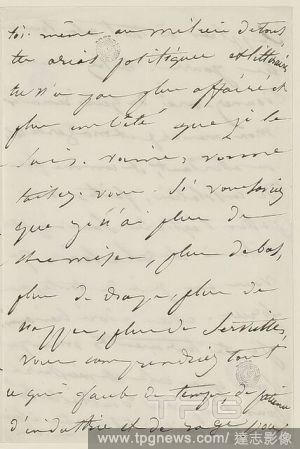 toi-même au milieu de tous
tes   politiques et littéraires
tu n'a pas plus affairé et
plus   que je le
suis.
taisez-vous. Si vous saviez
que je n'ai plus de
chemises, plus de bas,
plus de draps, plus de
nappes, plus de serviettes,
vous comprendriez tout
ce qu'il faut de temps, de patience
d'industrie et de   pour
TPG
www.tpgnews.com / 達志影像